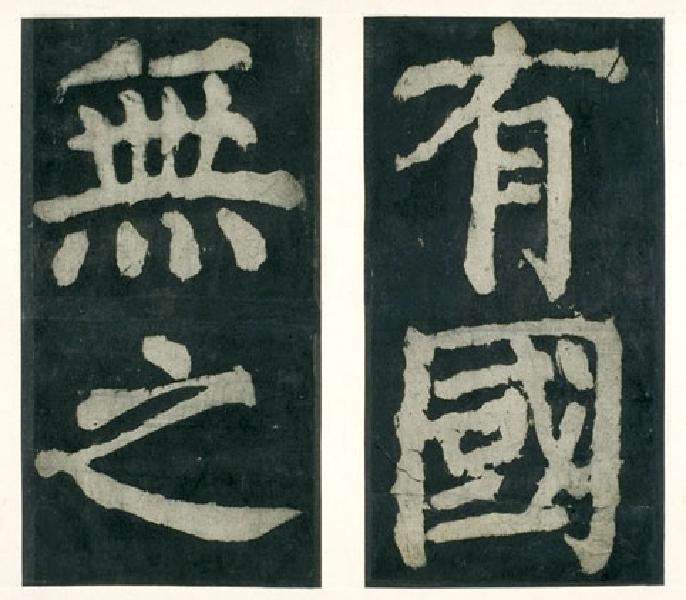 有國
無之